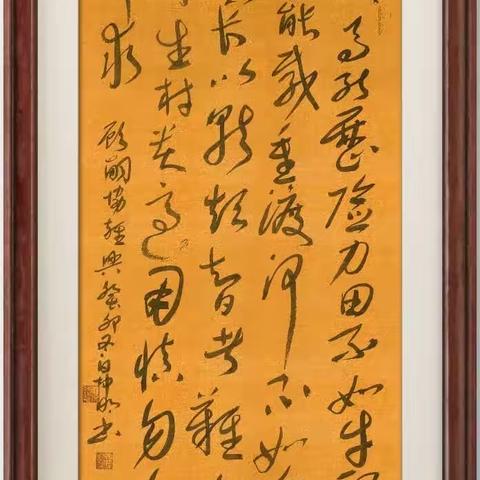 马能歷险力田不如牛
能载重渡河不如
长以就短智者難
生材贵适用慎勿
求
顾嗣協雜興癸卯冬白坤明书